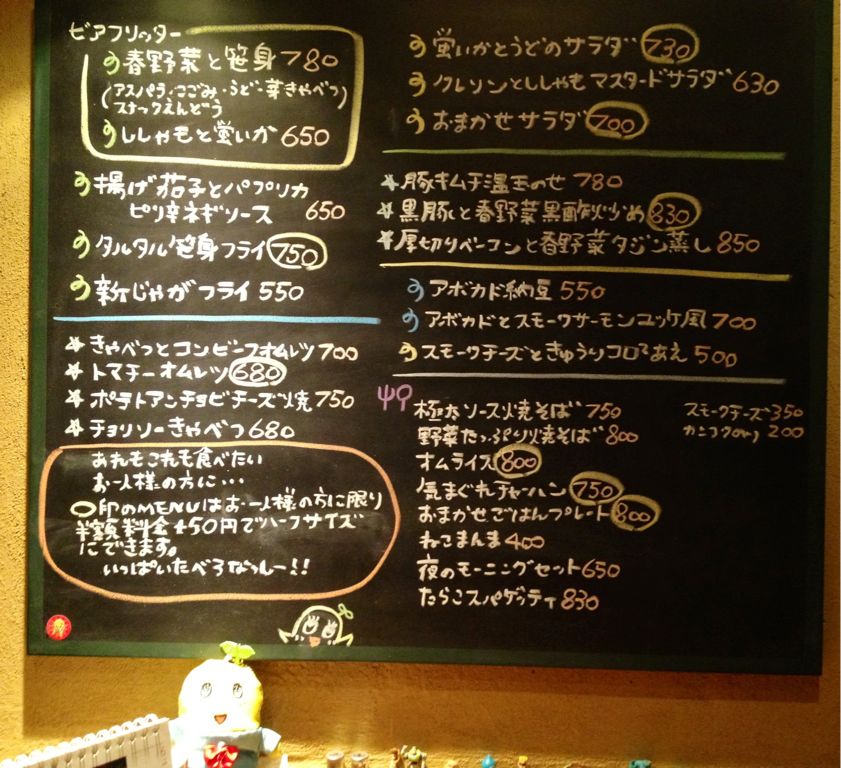 ビアフリッター
春野菜と笹身 780
(アスパラ、こごみ、うど、芽きゃべつ)
スナックえんどう
ししゃもと蛍いか 650
揚げ茄子とパプリカ
ピリ辛ネギソース 650
タルタル笹身フライ 750
新じゃがフライ 550
きゃべつとコンビーフオムレツ 700
トマチーオムレツ 680
ポテトアンチョビチーズ焼 750
チョリソーきゃべつ 680
あれもこれも食べたい
お一人様の方に…
○印のMENUはお一人様の方に限り
半額料金+50円でハーフサイズ
にできます。
いっぱいたべるなっしー!!
蛍いかとうどのサラダ 730
クレソンとししゃもマスタードサラダ 630
おまかせサラダ 700
豚キムチ温玉のせ 780
黒豚と春野菜黒酢炒め 830
厚切りベーコンと春野菜タジン蒸し 850
アボカド納豆 550
アボカドとスモークサーモンユッケ風 700
スモークチーズときゅうりコロコロあえ 500
極太ソース焼そば 750
野菜たっぷり焼そば 800
オムライス 800
気まぐれチャーハン 750
おまかせごはんプレート 800
ねこまんま 400
夜のモーニングセット 650
たらこスパゲッティ 830
スモークチーズ 350
カンコクのり 200